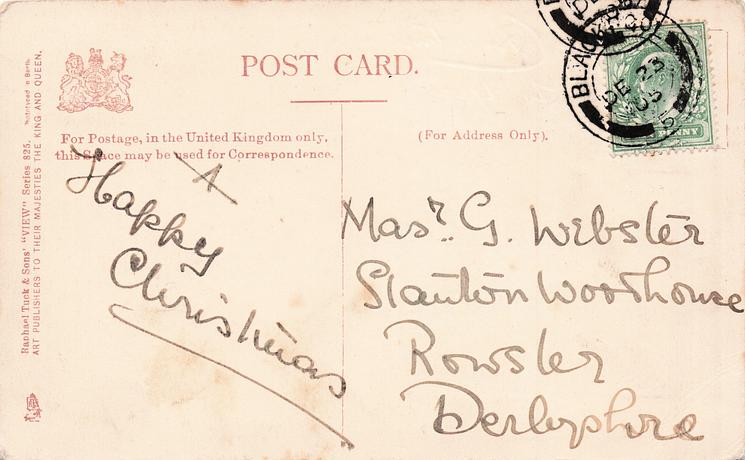 POST CARD.
For Postage, in the United Kingdom only,
this Space may be used for Correspondence.
(For Address Only).
A
Happy
Christmas
Masr. G. Webster
Stanton Woodhouse
Rowsler
Derbyshire
Raphael Tuck & Sons' "VIEW" Series 825.
ART PUBLISHERS TO THEIR MAJESTIES THE KING AND QUEEN.
DE 23
PENNY